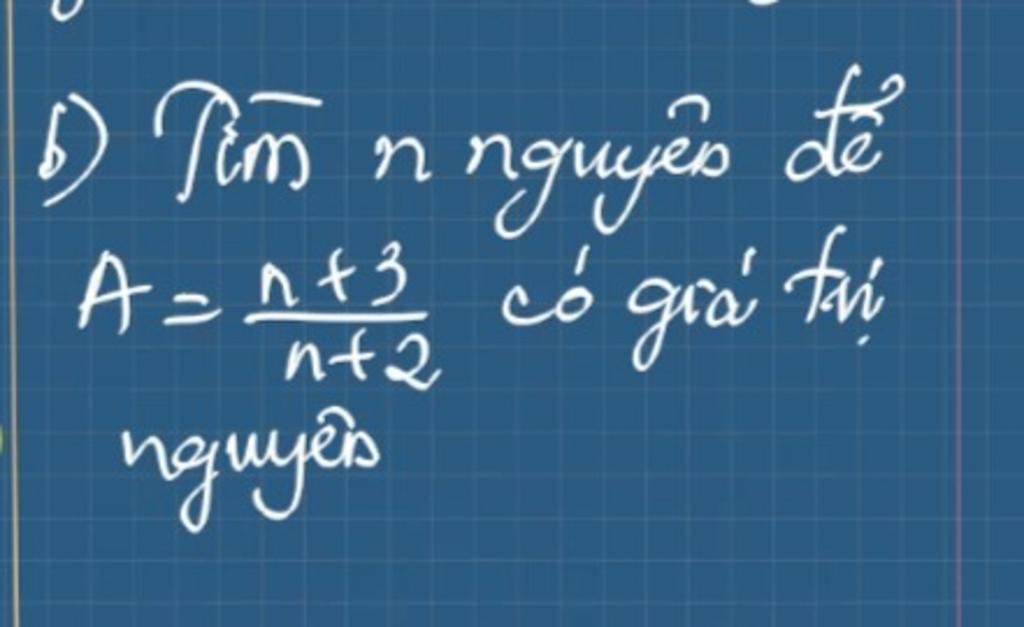 b) Tìm n nguyên để
A = \frac{n+3}{n+2} có giá trị
nguyên